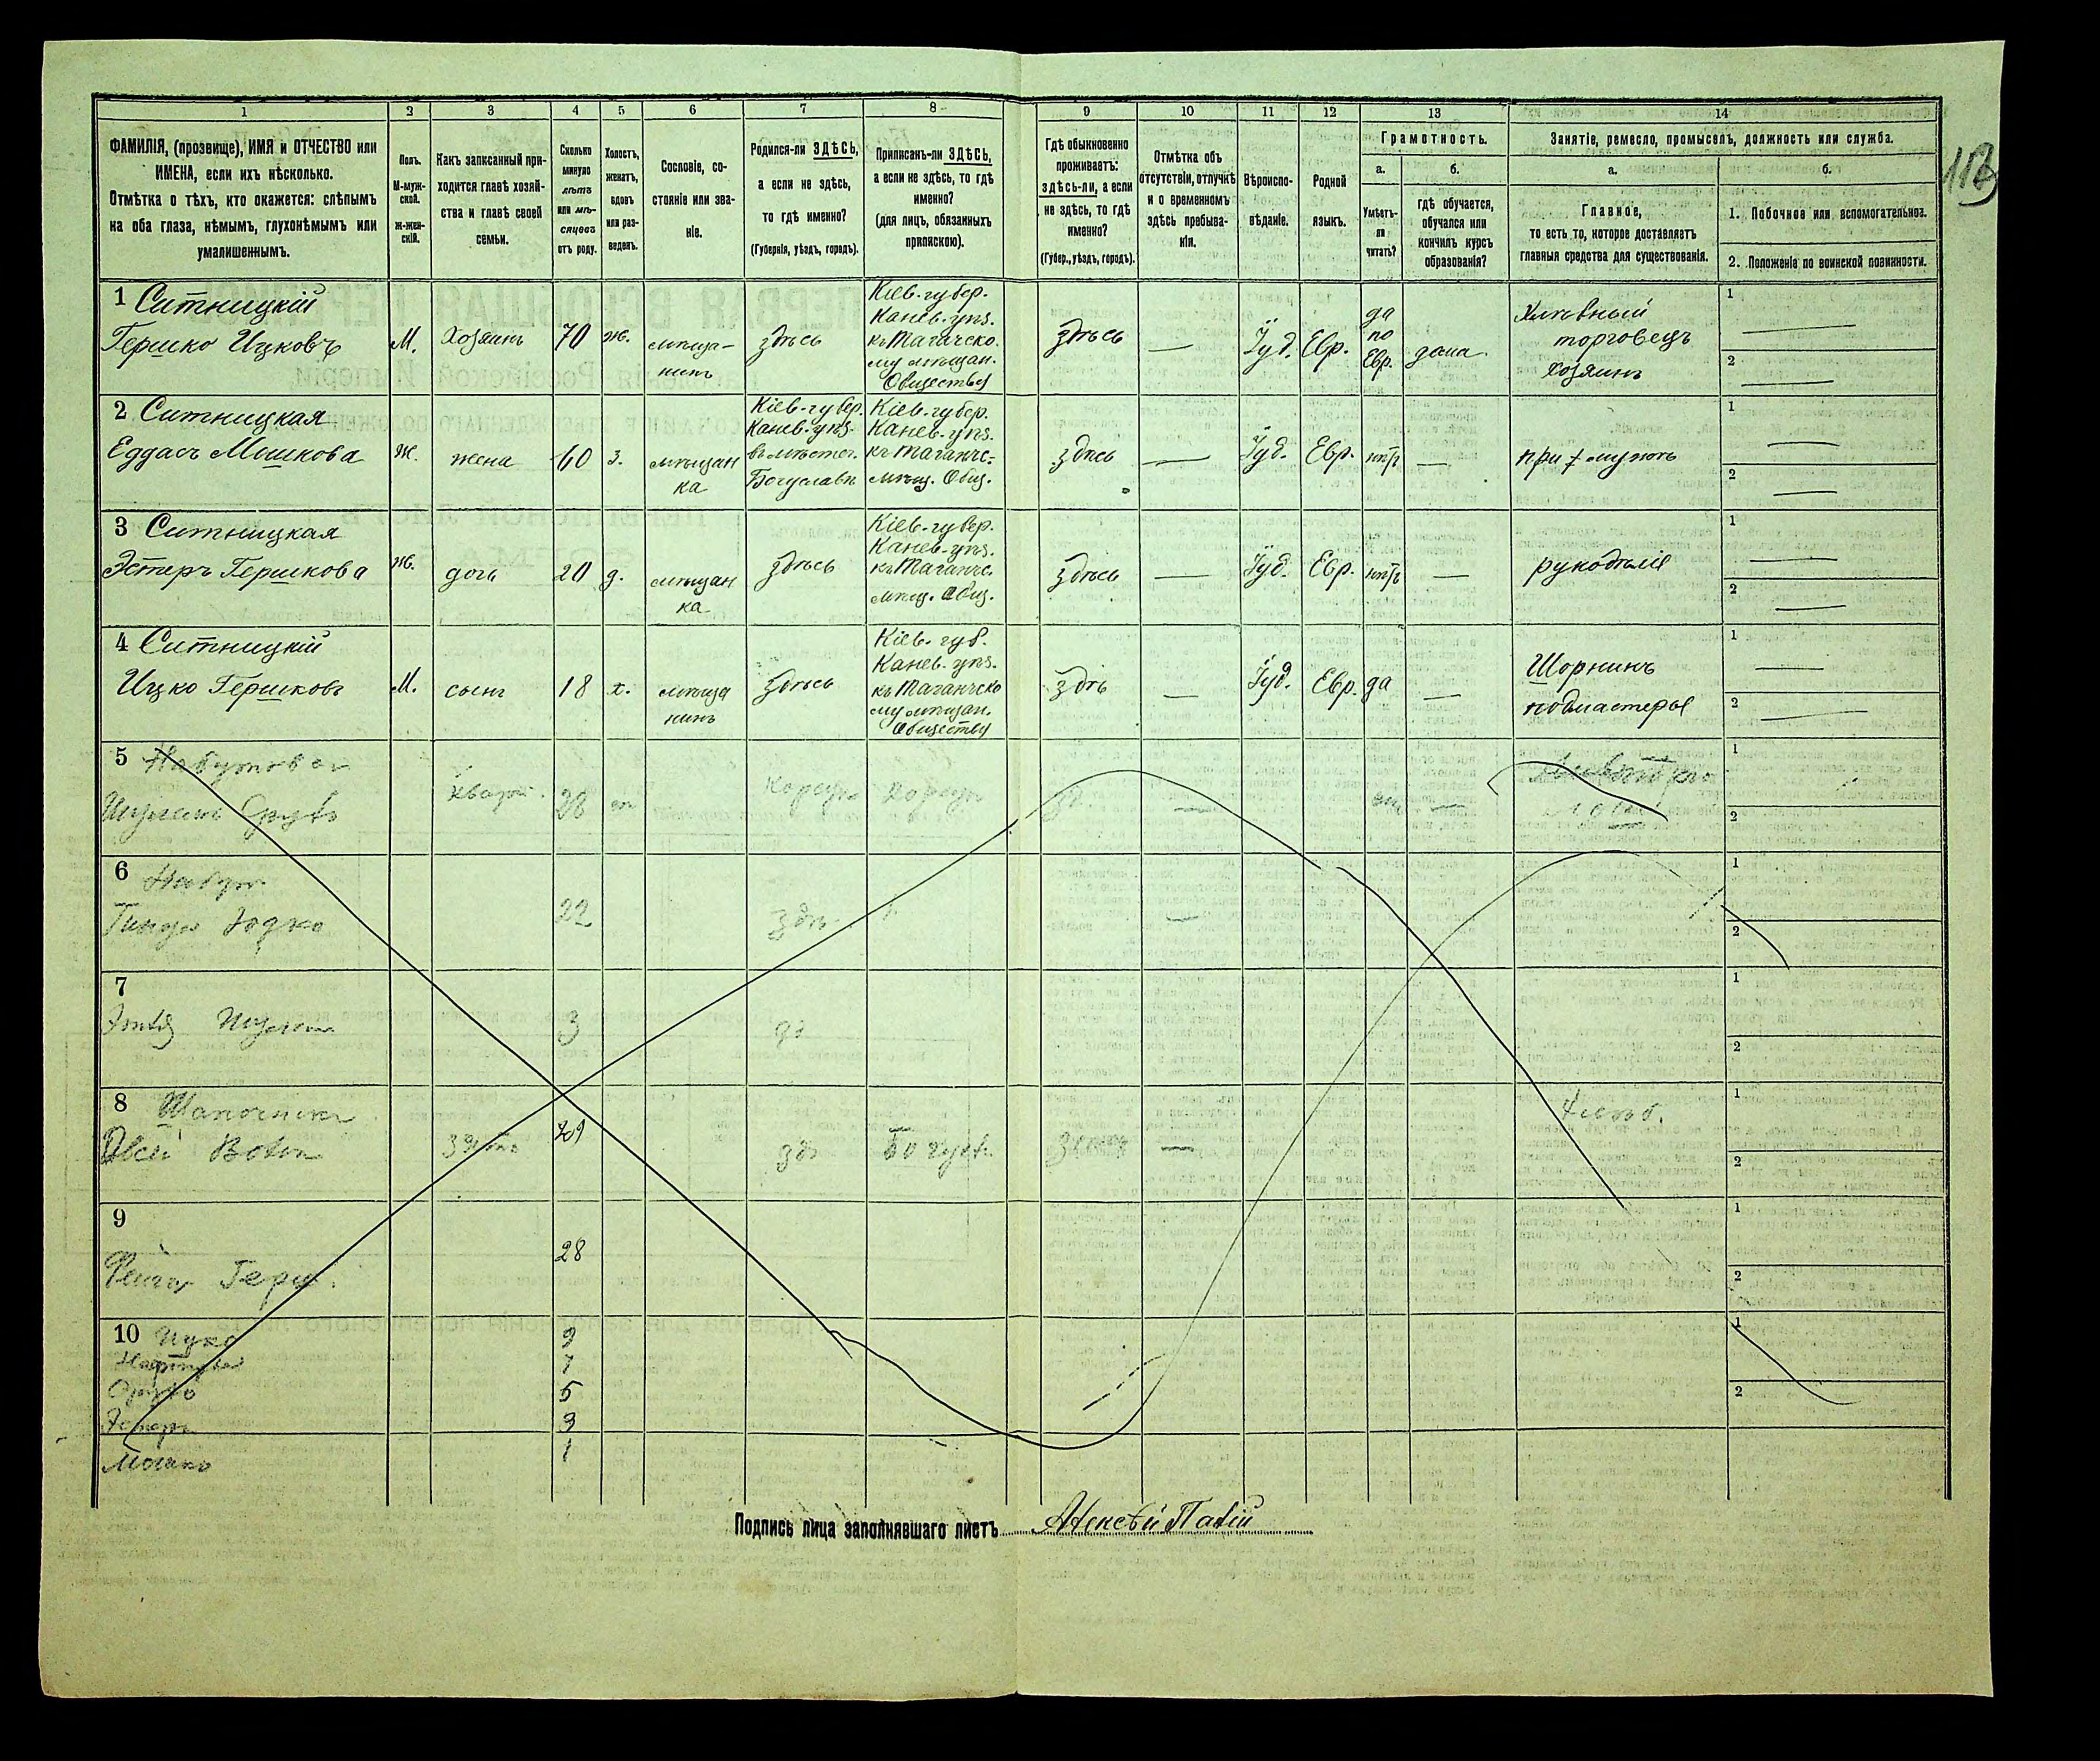 118
1 2 3 4 5 6 7 8 9 10 11 12 13 14
ФАМИЛІЯ, (прозвище), ИМЯ и ОТЧЕСТВО или
ИМЕНА, если ихъ нѣсколько.
Отмѣтка о тѣхъ, кто окажется: слѣпымъ
на оба глаза, нѣмымъ, глухонѣмымъ или
умалишеннымъ.
Полъ.
М-муж-
ской.
ж-жен-
скій.
Какъ записанный при-
ходится главѣ хозяй-
ства и главѣ своей
семьи.
Сколько
минуло
лѣтъ
или мѣ-
сяцевъ
отъ роду.
Холостъ,
женатъ,
вдовъ
или раз-
веденъ.
Сословіе, со-
стояніе или зва-
ніе.
Родился-ли ЗДѢСЬ,
а если не здѣсь,
то гдѣ именно?
(Губернія, уѣздъ, городъ).
Приписанъ-ли ЗДѢСЬ,
а если не здѣсь, то гдѣ
именно?
(для лицъ, обязанныхъ
припискою).
Гдѣ обыкновенно
проживаетъ:
здѣсь-ли, а если
не здѣсь, то гдѣ
именно?
(Губер., уѣздъ, городъ).
Отмѣтка объ
отсутствіи, отлучкѣ
и о временномъ
здѣсь пребыва-
ніи.
Вѣроиспо-
вѣданіе.
Родной
языкъ.
Грамотность.
а.
Умѣетъ-
ли
читать?
б.
гдѣ обучается,
обучался или
кончилъ курсъ
образованія?
Занятіе, ремесло, промыселъ, должность или служба.
а.
Главное,
то есть то, которое доставляетъ
главныя средства для существованія.
б.
1. Побочное или вспомогательное.
2. Положеніе по воинской повинности.
1 Ситницкій
Гершко Ицковъ
М.
Хозяинъ
70
ж.
мѣща-
нинъ
здѣсь
Кіев. губер.
Канев. уѣз.
къ Таганчско-
му мѣщан.
Обществу
здѣсь
—
Іуд.
Евр.
да
по
Евр.
дома
Хлѣбный
торговецъ
хозяинъ
1 —
2 —
2 Ситницкая
Еддась Мошкова
Ж.
жена
60
з.
мѣщан
ка
Кіев. губер.
Канев. уѣз.
въ мѣстеч.
Богуславѣ
Кіев. губер.
Канев. уѣз.
къ Таганчс-
мѣщ. Общ.
здѣсь
—
Іуд.
Евр.
нѣтъ
—
при мужѣ
1 —
2 —
3 Ситницкая
Эстеръ Гершкова
Ж.
дочь
20
д.
мѣщан
ка
здѣсь
Кіев. губер.
Канев. уѣз.
къ Таганчс.
мѣщ. Общ.
здѣсь
—
Іуд.
Евр.
нѣтъ
—
рукодѣліе
1 —
2 —
4 Ситницкій
Ицко Гершковъ
М.
сынъ
18
х.
мѣща
нинъ
здѣсь
Кіев. губ.
Канев. уѣз.
къ Таганчско
му мѣщан.
Обществу
здѣ
—
Іуд.
Евр.
да
—
Шорникъ
подмастерье
1 —
2 —
5
кварт.
28
—
—
1
2
6
22
здѣ
—
1
2
7
3
1
2
8
зять
—
1
2
9
Фейга Герш.
28
1
2
10 Ицко
9
7
5
Эстеръ
3
Мошко
1
1
2
Подпись лица заполнявшаго листъ Алексѣй